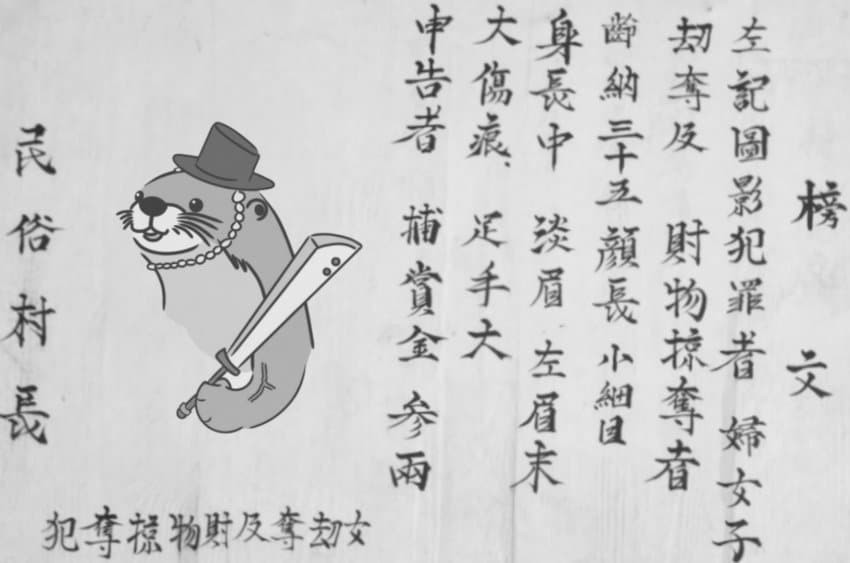 榜文
左記圖影犯罪者 婦女子
劫奪反 財物掠奪者
齡納三十五 顔長 小細目
身長中 淡眉 左眉末
大傷痕、足手大
申告者 捕賞金 參兩
民俗村長
女劫奪反財物掠奪犯